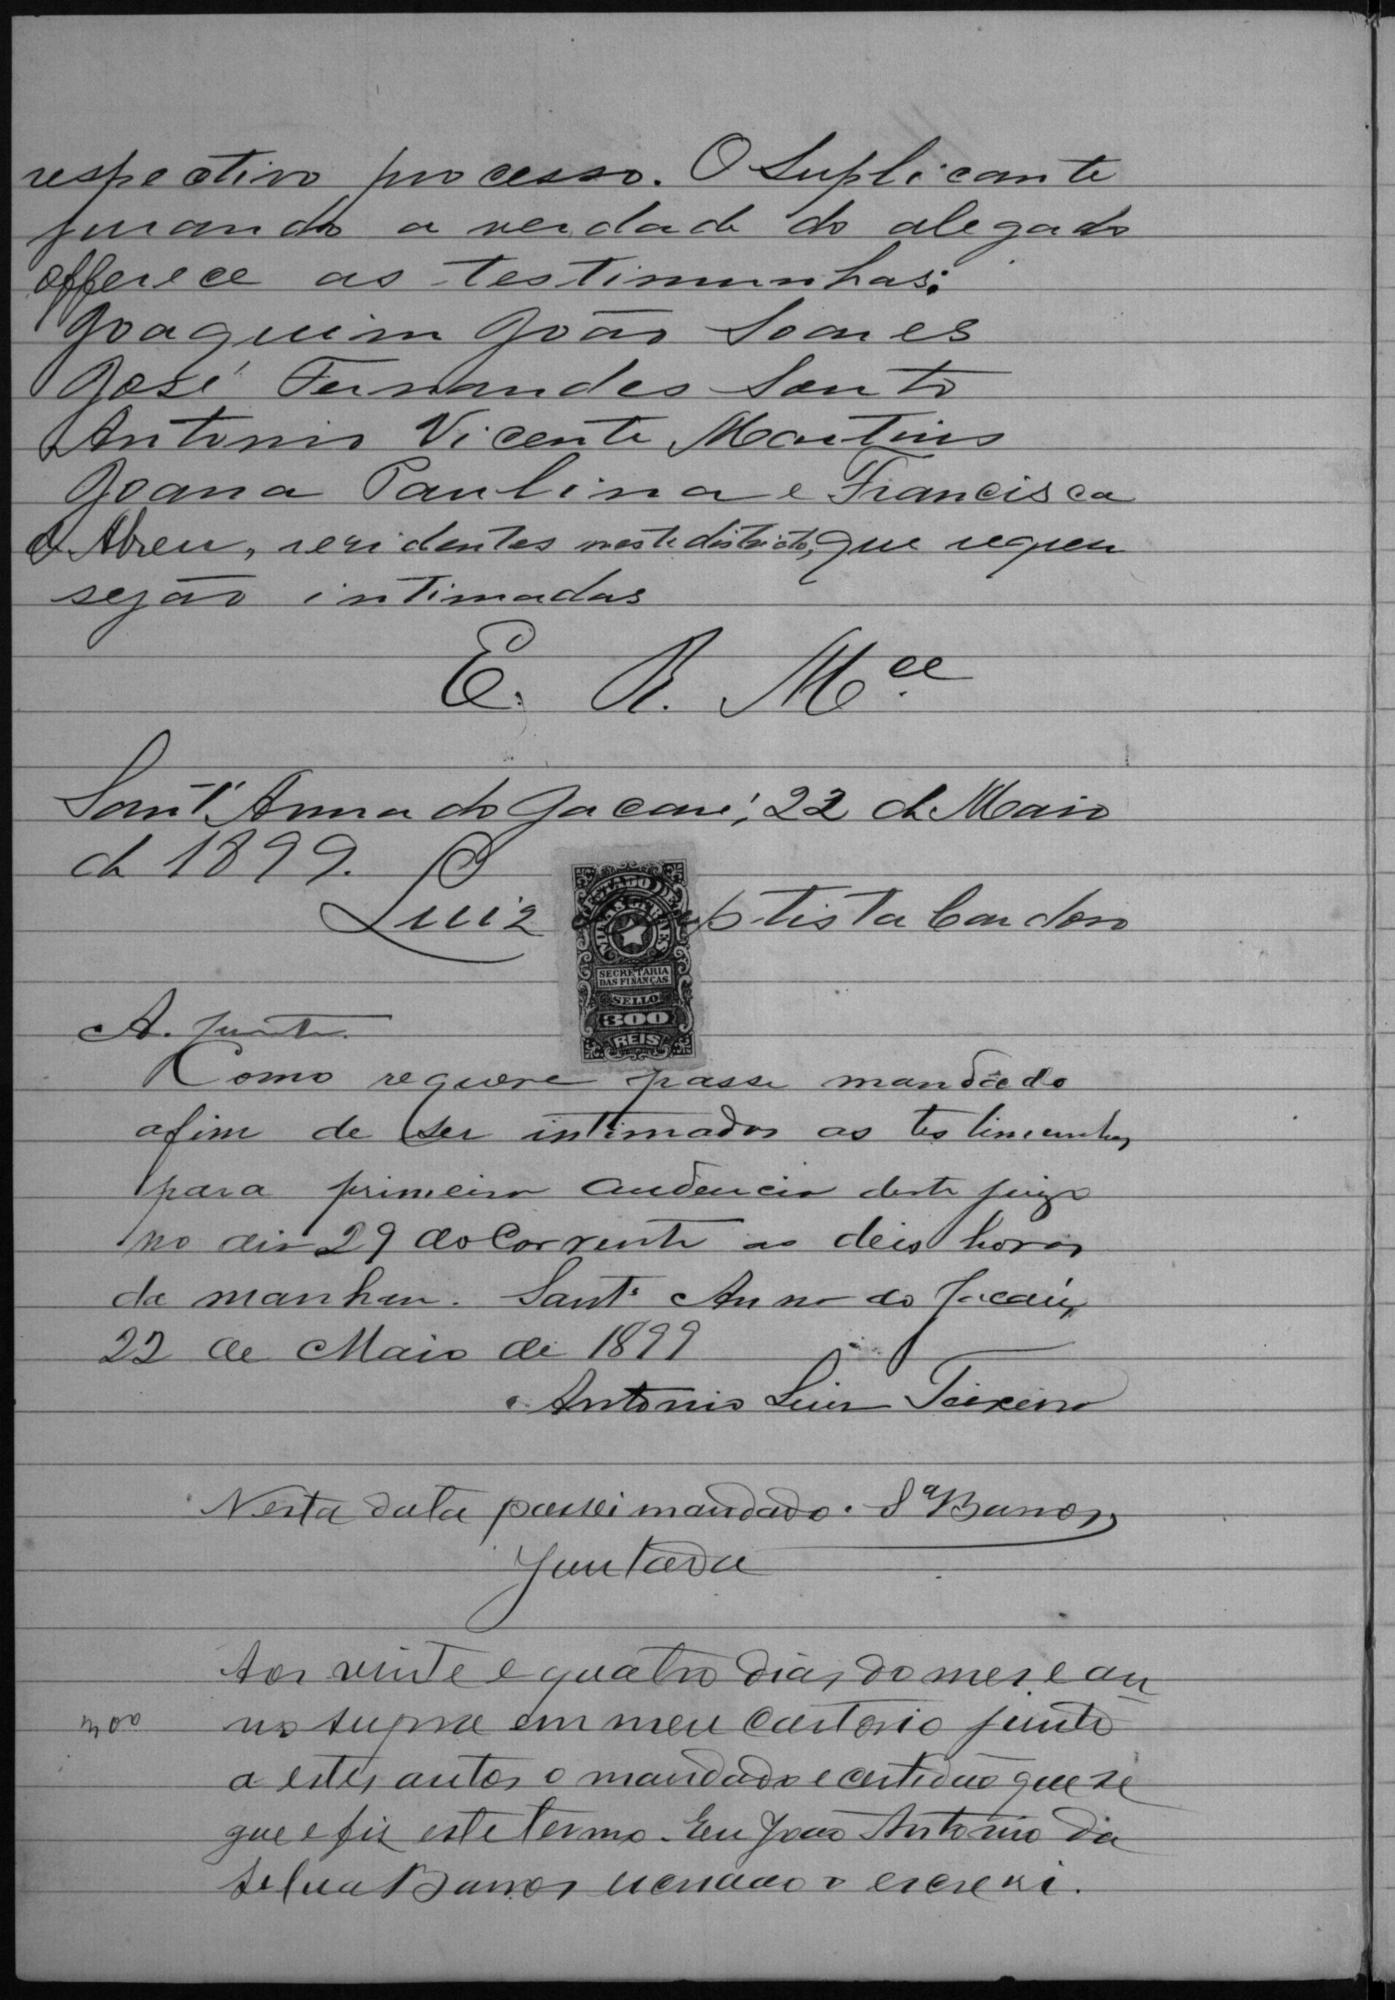 respectivo processo. O Suplicante
jurando a verdade do alegado
offerece as testimunhas:
Joaquim João Soares
José Fernandes Souto
Antonio Vicente Martins
Joana Paulina e Francisca
d'Abreu, residentes neste districto, que requer
sejão intimadas
E. R. M.ce
Sant'Anna do Jacaré, 22 de Maio
de 1899.
Luiz Baptista Cardoso
ESTADO DE
MINAS GERAES
SECRETARIA
DAS FINANÇAS
SELLO
300
REIS
A. junte.
Como requere passe mandado
afim de ser intimados as testimunhas
para primeira audencia deste juizo
no dia 29 do Corrente as deis horas
da manhan. Sant' Anna do Jacaré,
22 de Maio de 1899
Antonio Luiz Teixeira
Nesta data passei mandado. Sª Barros
Juntada
Aos vinte e quatro dias do mes e an
no supra em meu Cartorio junto
300
a estes autos o mandado e certidão que se
gue e fiz este termo. Eu João Antonio da
Silva Barros escrivão o escrevi.